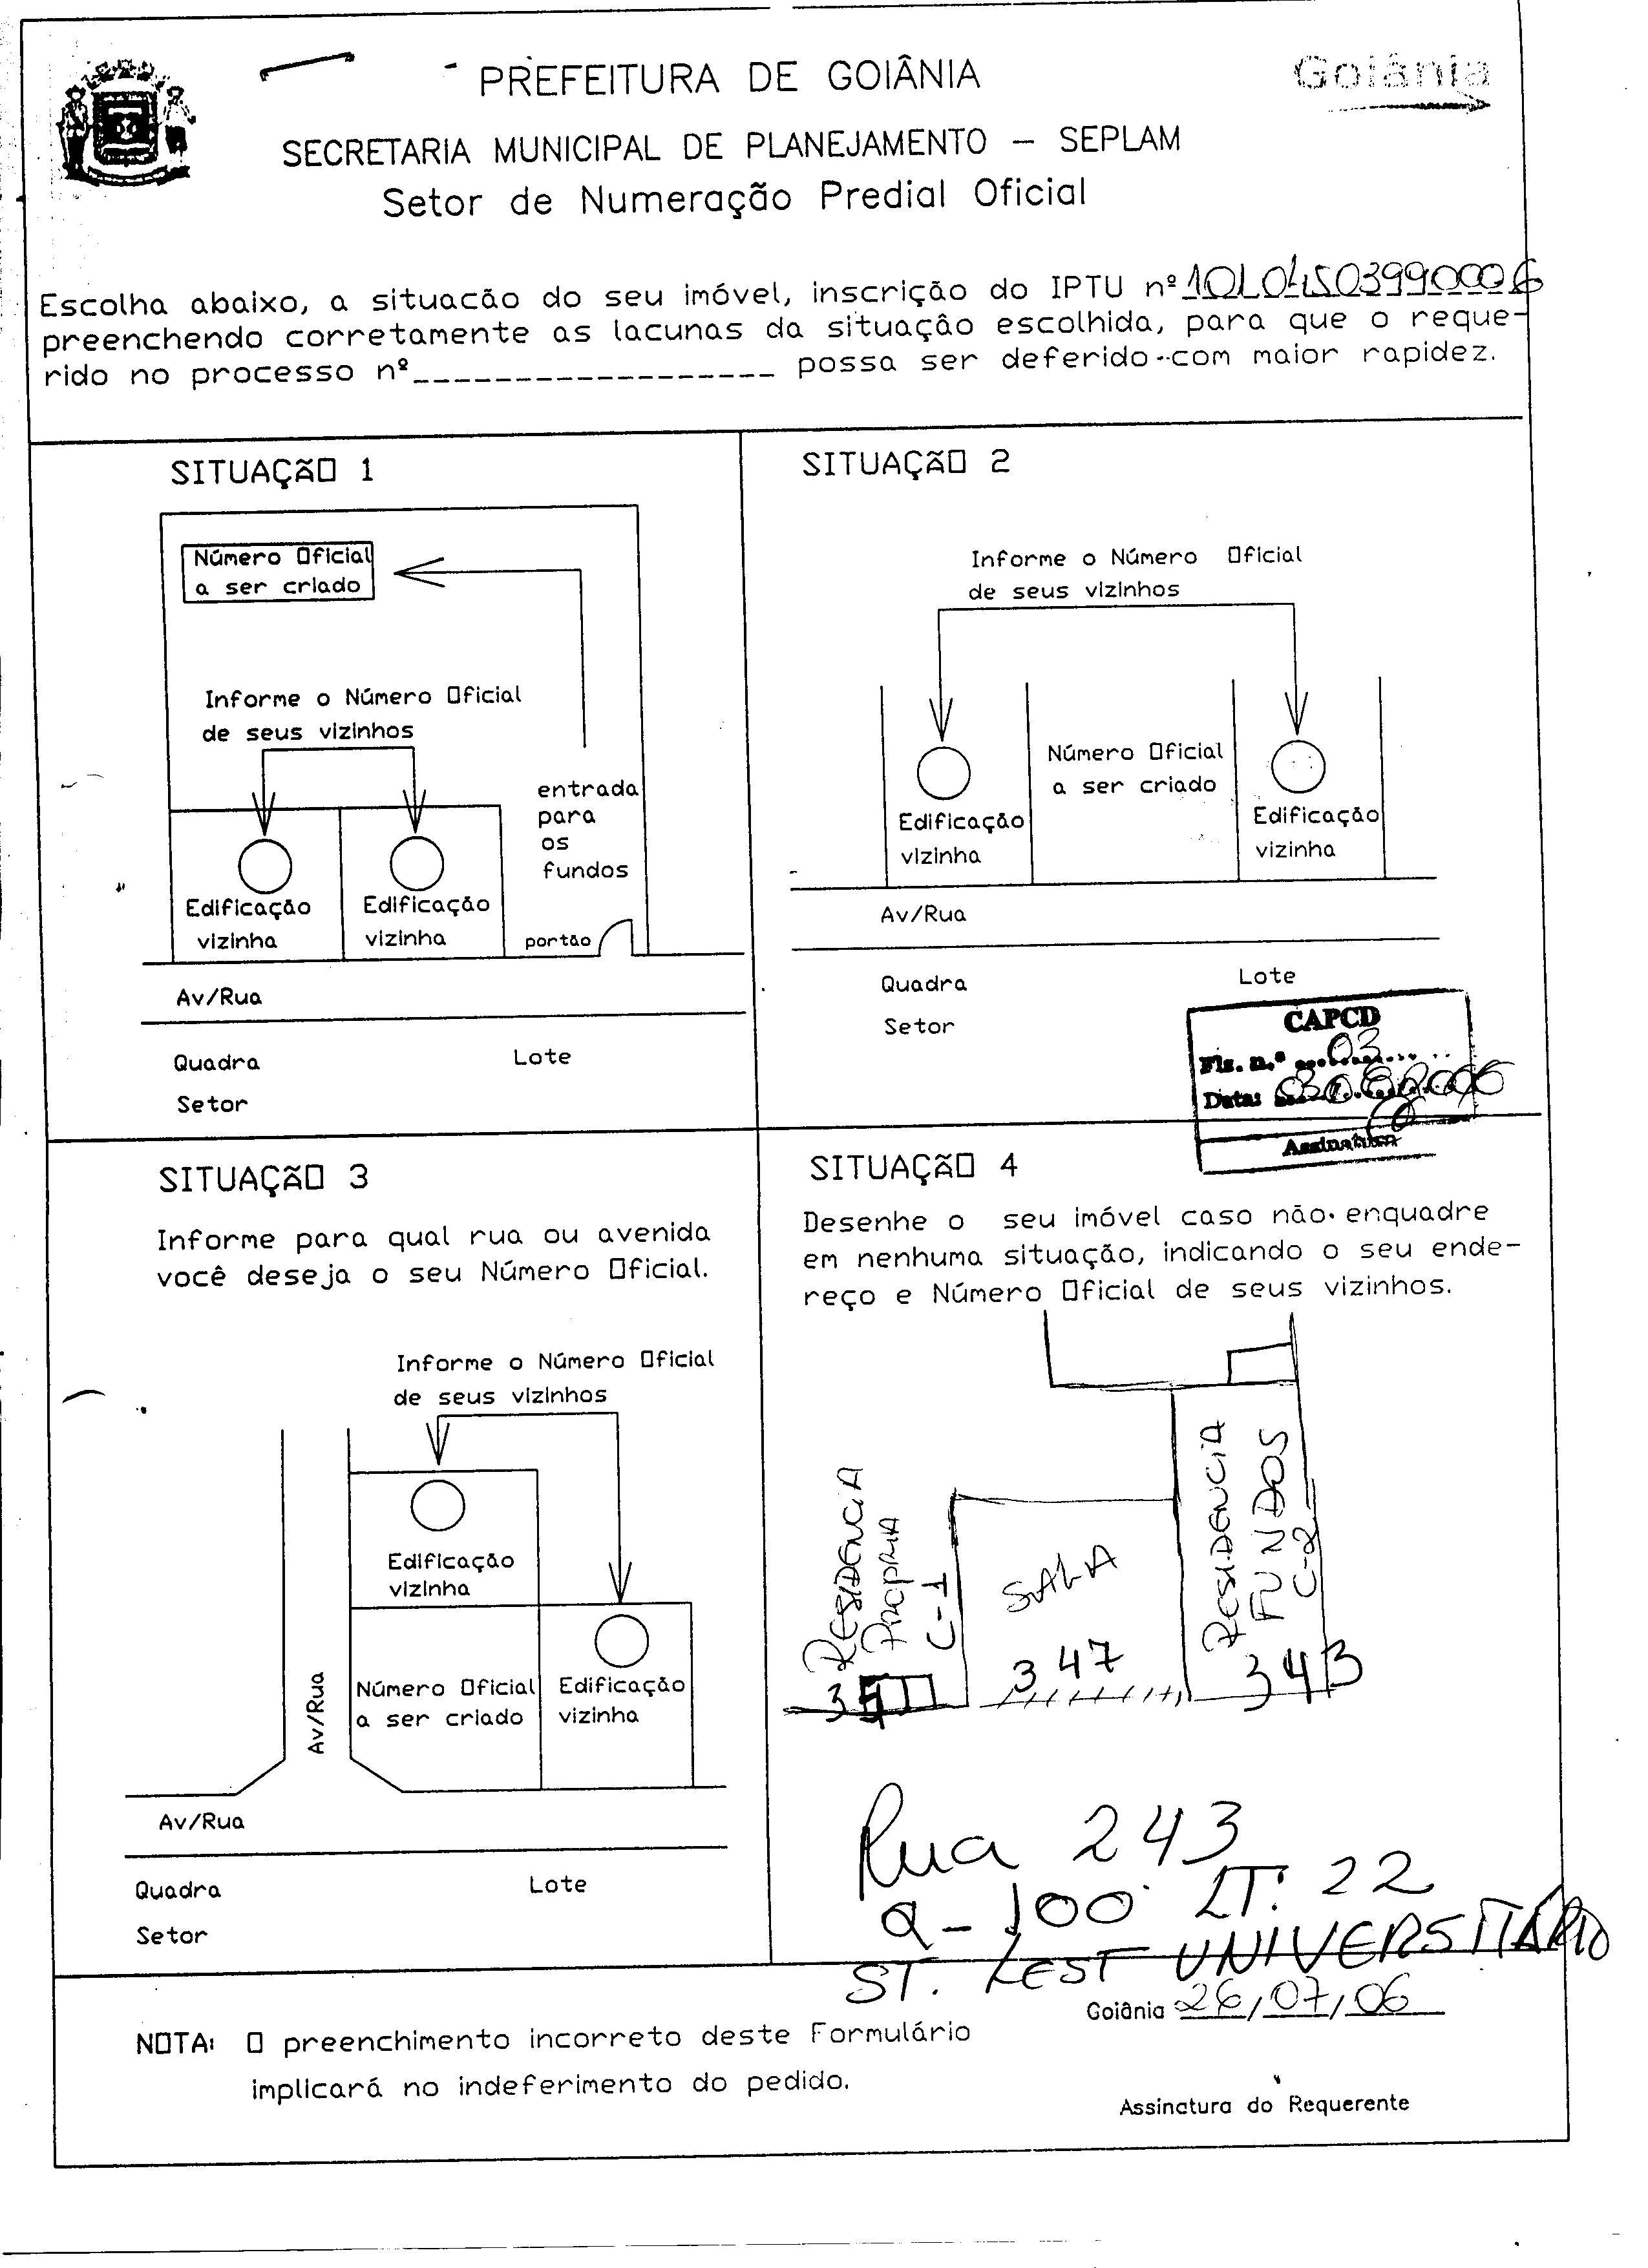 PREFEITURA DE GOIÂNIA
Goiânia
SECRETARIA MUNICIPAL DE PLANEJAMENTO – SEPLAM
Setor de Numeração Predial Oficial
Escolha abaixo, a situacão do seu imóvel, inscrição do IPTU nº 10104503990006
preenchendo corretamente as lacunas da situação escolhida, para que o reque-
rido no processo nº__________________ possa ser deferido com maior rapidez.
SITUAÇÃO 1
Número Oficial
a ser criado
Informe o Número Oficial
de seus vizinhos
entrada
para
os
fundos
Edificação
vizinha
Edificação
vizinha
portão
Av/Rua
Quadra Lote
Setor
SITUAÇÃO 2
Informe o Número Oficial
de seus vizinhos
Número Oficial
a ser criado
Edificação
vizinha
Edificação
vizinha
Av/Rua
Quadra Lote
Setor
CAPCD
Fls. n.º 03
Data:
Assinatura
SITUAÇÃO 3
Informe para qual rua ou avenida
você deseja o seu Número Oficial.
Informe o Número Oficial
de seus vizinhos
Edificação
vizinha
Av/Rua
Número Oficial
a ser criado
Edificação
vizinha
Av/Rua
Quadra Lote
Setor
SITUAÇÃO 4
Desenhe o seu imóvel caso não enquadre
em nenhuma situação, indicando o seu ende-
reço e Número Oficial de seus vizinhos.
RESIDENCIA
PROPRIA
C-1
SALA
347
RESIDENCIA
FUNDOS
C-2
343
Rua 243
Q-100 LT. 22
ST. LEST UNIVERSITÁRIO
Goiânia 26/07/06
NOTA: O preenchimento incorreto deste Formulário
implicará no indeferimento do pedido.
Assinatura do Requerente